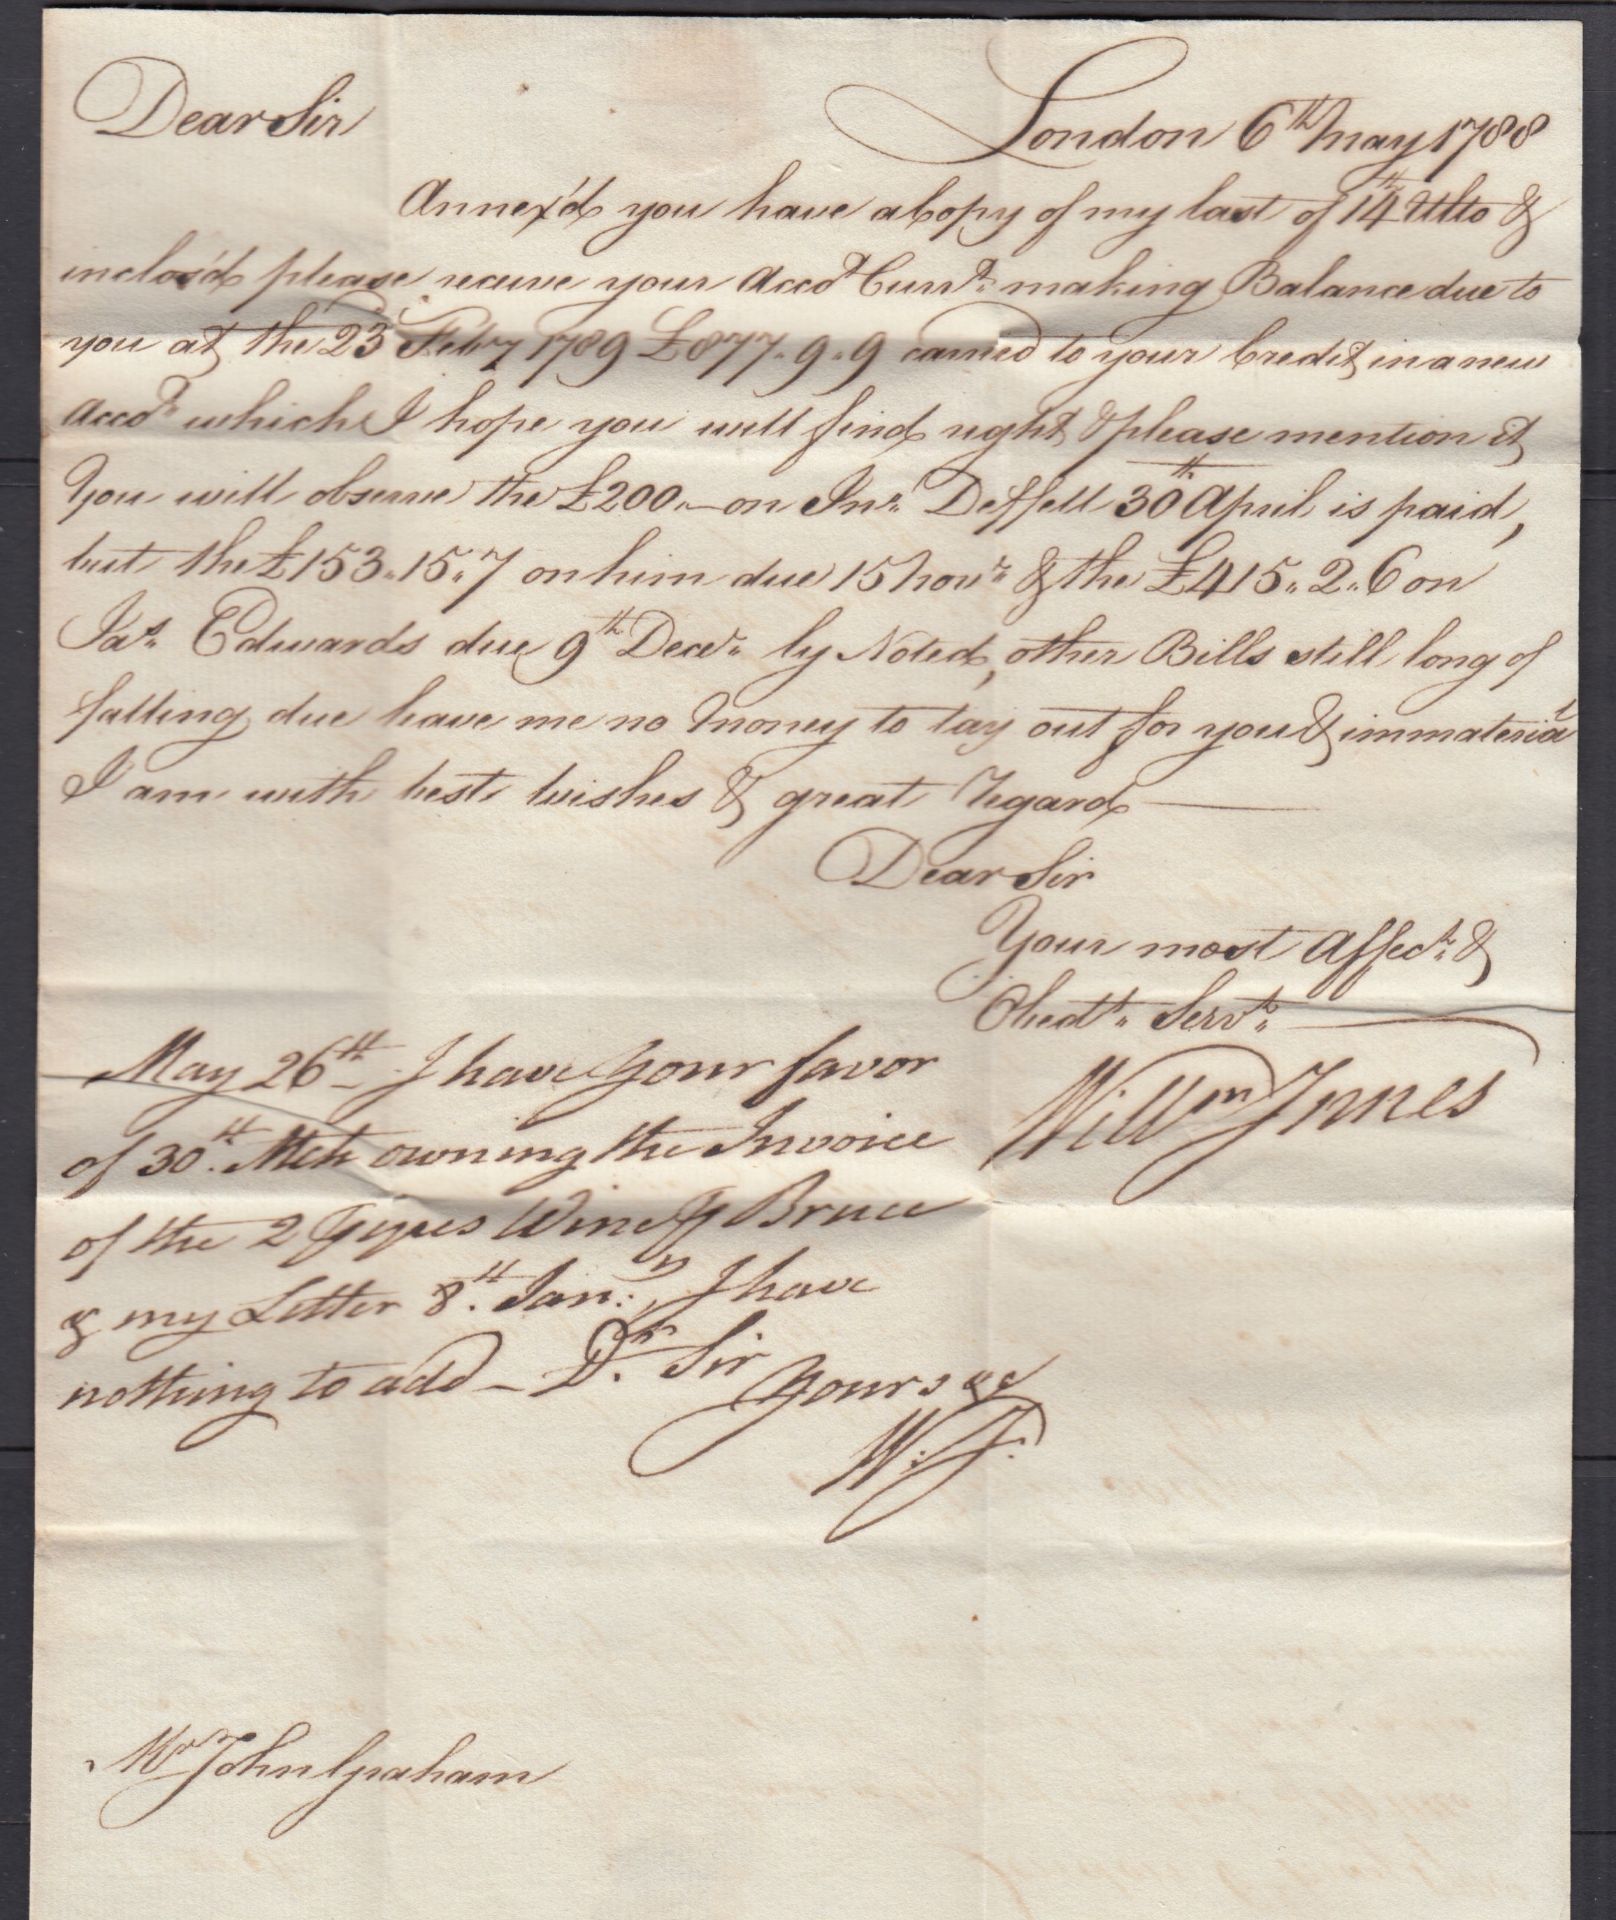 Dear Sir
London 6th May 1788
Annex'd you have a Copy of my last of 14th Ulto &
inclos'd please receive your Accot Currt making Balance due to
you at the 23 Feby 1789 £877.9.9 carried to your Credit in a new
Accot which I hope you will find right & please mention it
You will observe the £200.— on Jno. Deffell 30th April is paid,
but the £153.15.7 on him due 15 Novr & the £415.2.6 on
Jas. Edwards due 9th Decr. ly Noted, other Bills still long of
falling due leave me no Money to lay out for you & immaterial
I am with best Wishes & great Regard —
Dear Sir
Your most Affect. &
Obedt. Servt.
Willm Innes
May 26th — I have your favor
of 30th. Mch owning the Invoice
of the 2 Pipes Wine P Bruce
& my Letter 8th. Jany., I have
nothing to add — Dr. Sir
Yours &c
W: I:
Mr John Graham